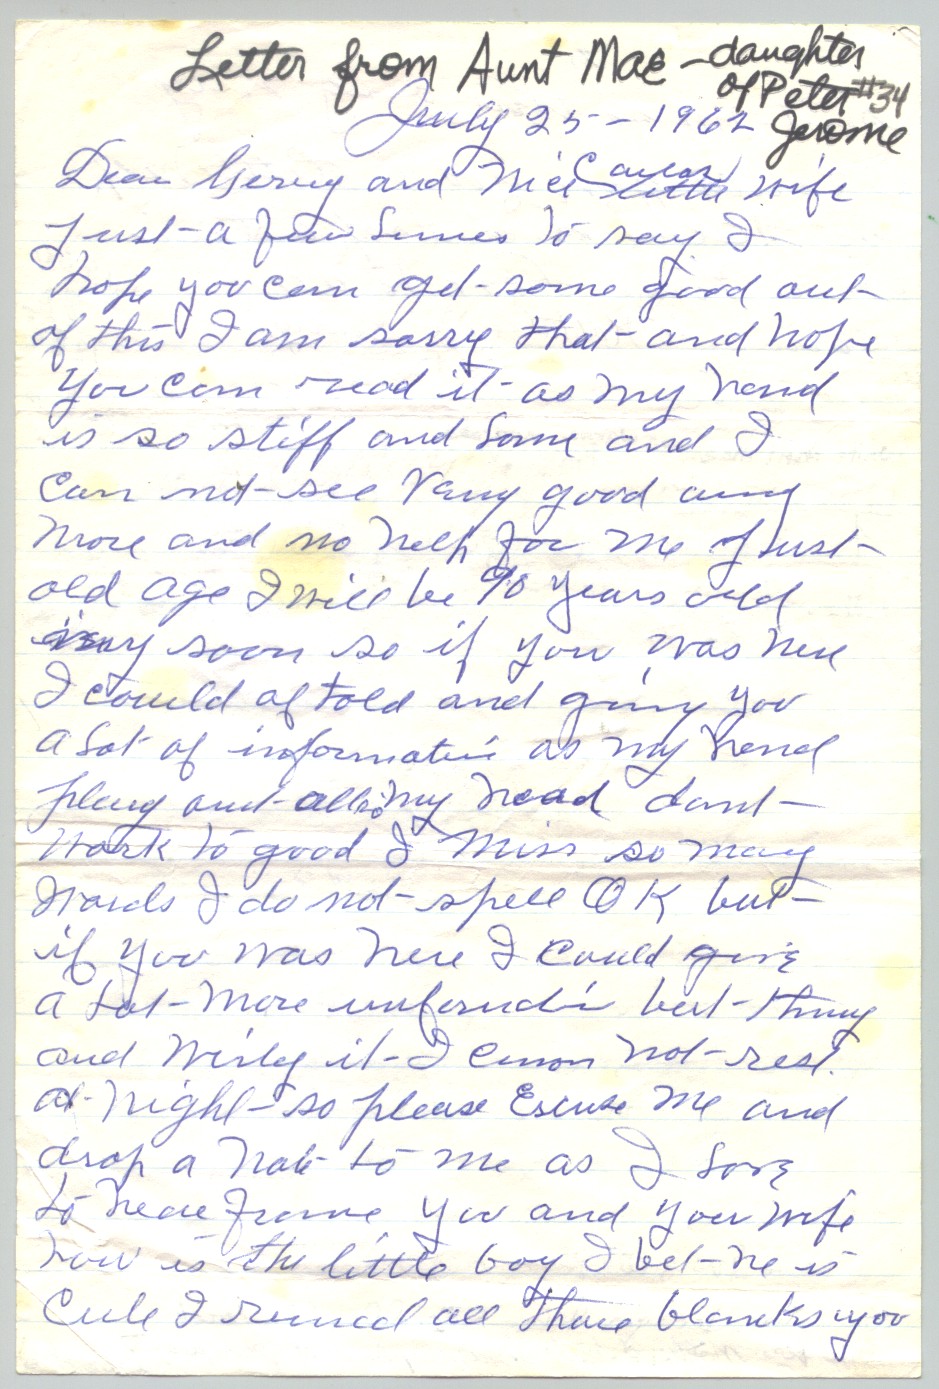 Letter from Aunt Mae - daughter
of Peter #34
Jerome
July 25 - 1962
Dear Gerry and Nice little wife
Just a few lines to say I
hope you can get some good out
of this I am sorry that and hope
you can read it as my hand
is so stiff and lame and I
can not see very good any
more and no help for me Just
old age I will be 90 years old
soon so if you was here
I could of told and you
a lot of as my hand
and my head dont
work to good I miss so many
words I do not spell OK but
if you was here I could give
a lot more but
and it I not rest
at night so please me and
drop a note to me as I love
to hear you and your wife
how is the little boy I bet he is
I all those blanks you